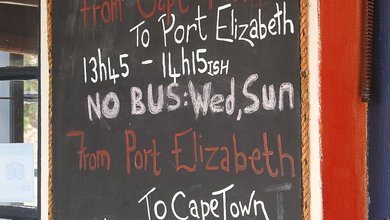 From Cape Town
To Port Elizabeth
13h45 - 14h15ISH
NO BUS: Wed, Sun
From Port Elizabeth
To Cape Town